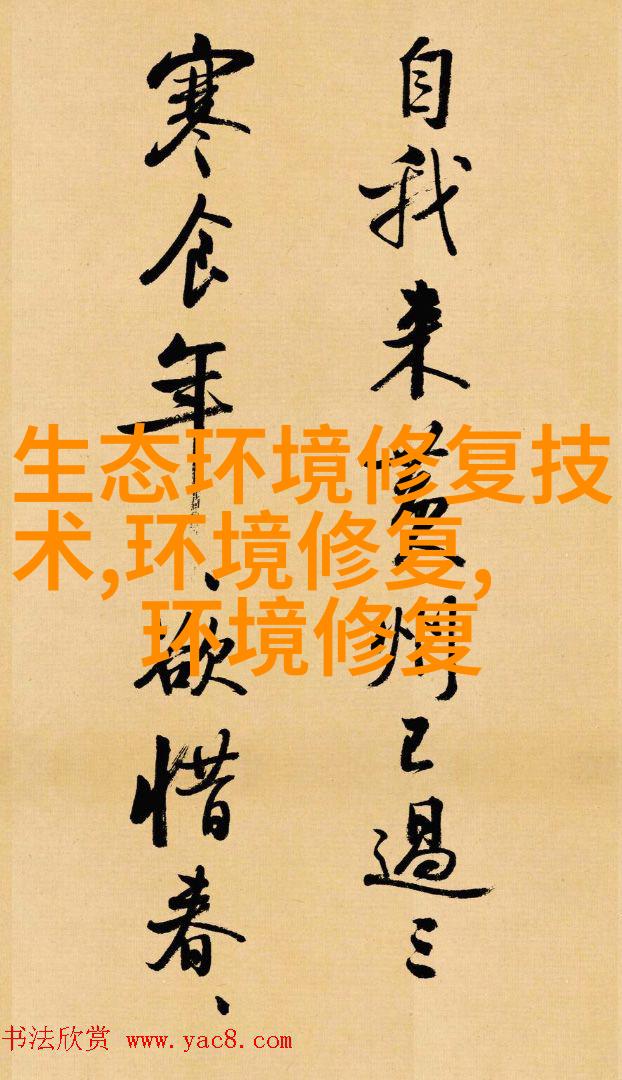 自我来黄州已過三
寒食年、欲惜春、
生态环境修复技
术,环境修复,
环境修复
书法欣赏 www.yac8.com